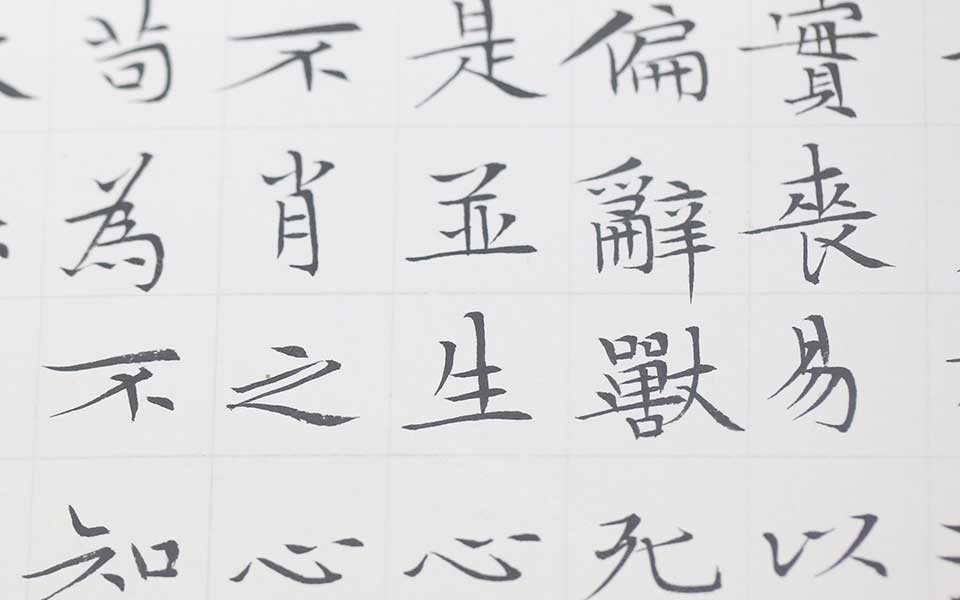 實喪易以
偏辭獸死
是並生心
不肖之心
苟為不知